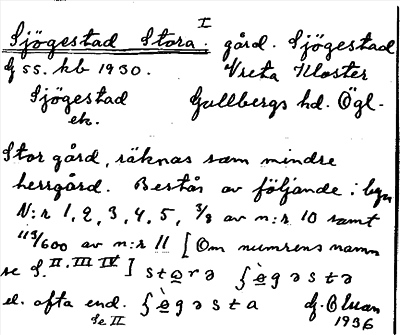 I
Sjögestad Stora. gård. Sjögestad
G 55. kb 1930. Vreta Kloster
Sjögestad Gullbergs hd. Ögl.
ek.
Stor gård, räknas som mindre
herrgård. Består av följande:
N:r 1, 2, 3, 4, 5, 3/8 av n:r 10 samt
113/600 av n:r 11 [Om numrens namn
se S. II. III IV] ʃègəsta
el. ofta end. ʃègəsta
Se II 1936